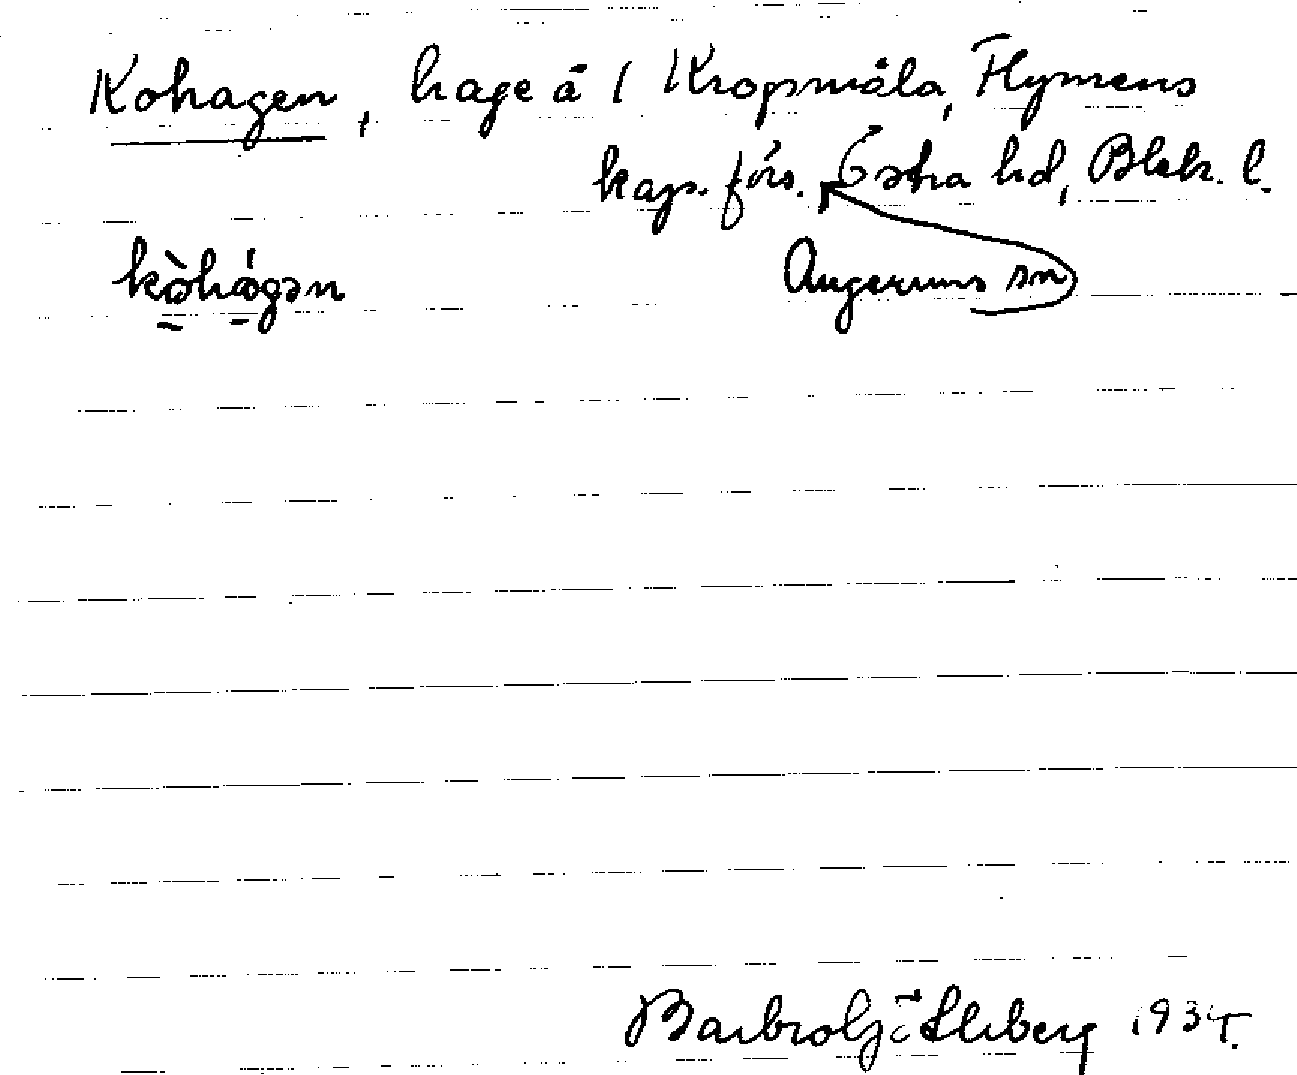 Kohagen, hage å 1 Kropsmåla, Flymens
kap. förs. Östra hd, Blek. l.
kòhágən Augerums sn
1934.